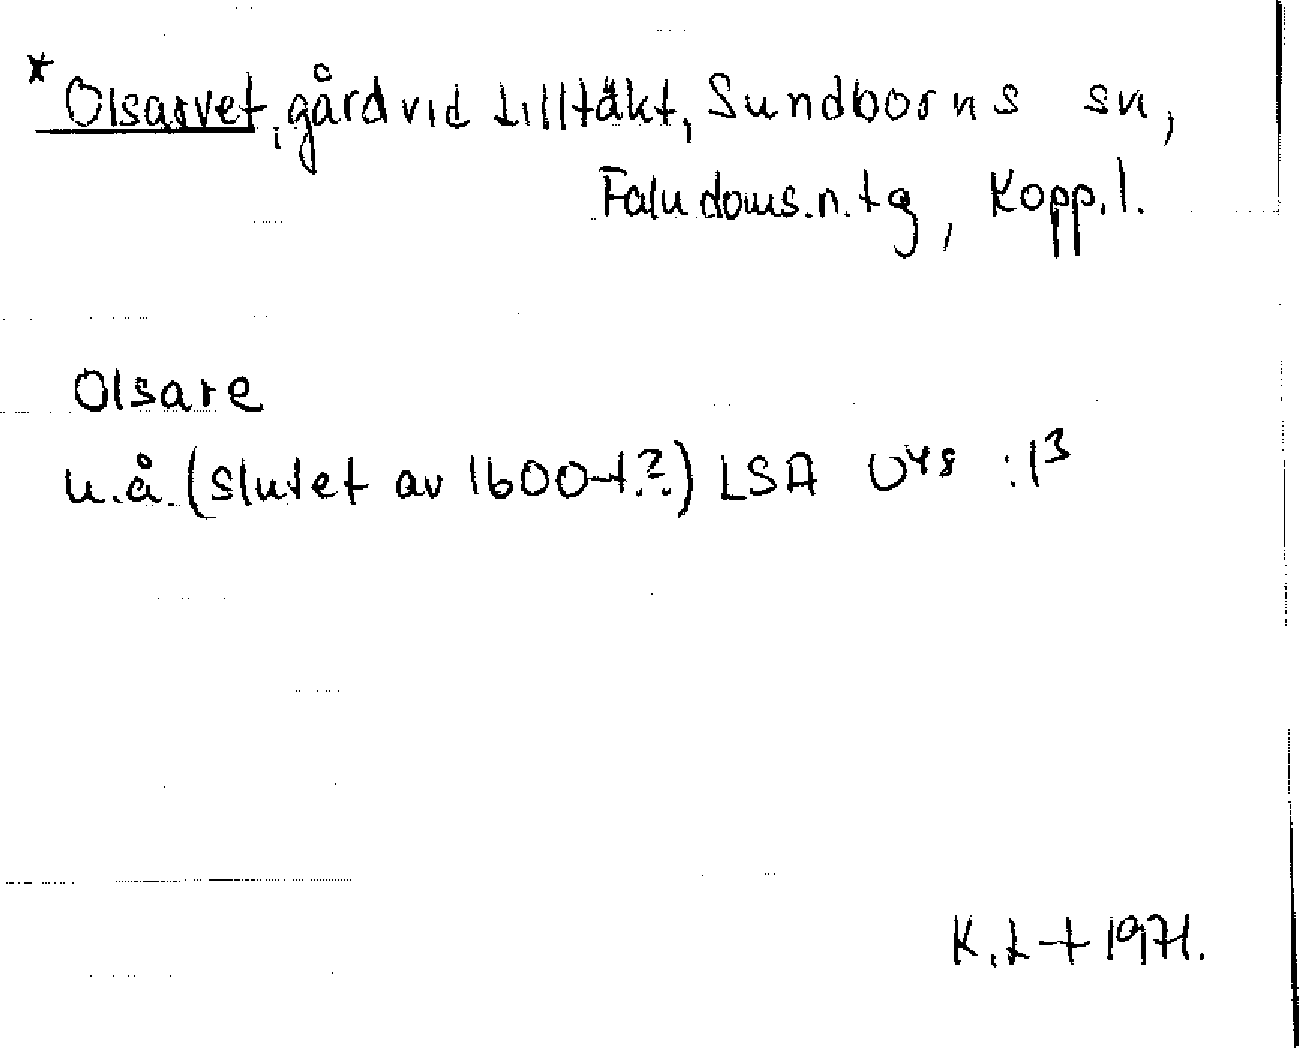 * Olsarvet, gård vid Lilltäkt, Sundborns sn,
Falu doms.n.tg, Kopp.l.
Olsare
u.å. (slutet av 1600-t.?) LSA U48 :1³
K.L-t 1971.